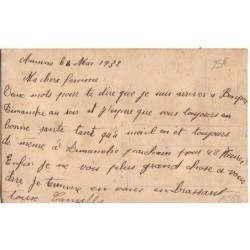 Amiens le Mai 1932
Ma chère
Deux mots pour te dire que je suis arrivée à
Dimanche au soir et j'espère que vous toujours en
bonne santé tant qu'à moi et toujours
de même à Dimanche prochain pour 48 heures
Enfin je ne vous plus grand chose a vous
dire je termine en vous en Brassant